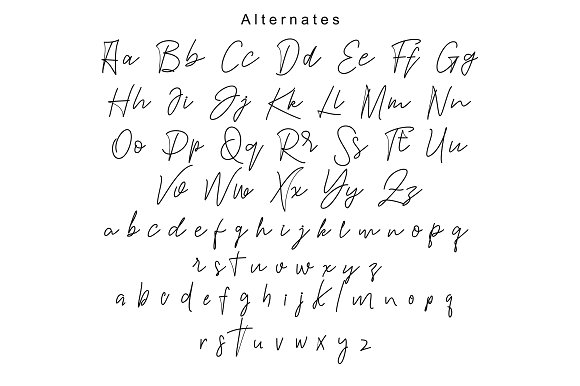 Alternates
Aa Bb Cc Dd Ee Ff Gg
Hh Ii Jj Kk Ll Mm Nn
Oo Pp Qq Rr Ss Tt Uu
Vv Ww Xx Yy Zz
a b c d e f g h i j k l m n o p q
r s t u v w x y z
a b c d e f g h i j k l m n o p q
r s t u v w x y z